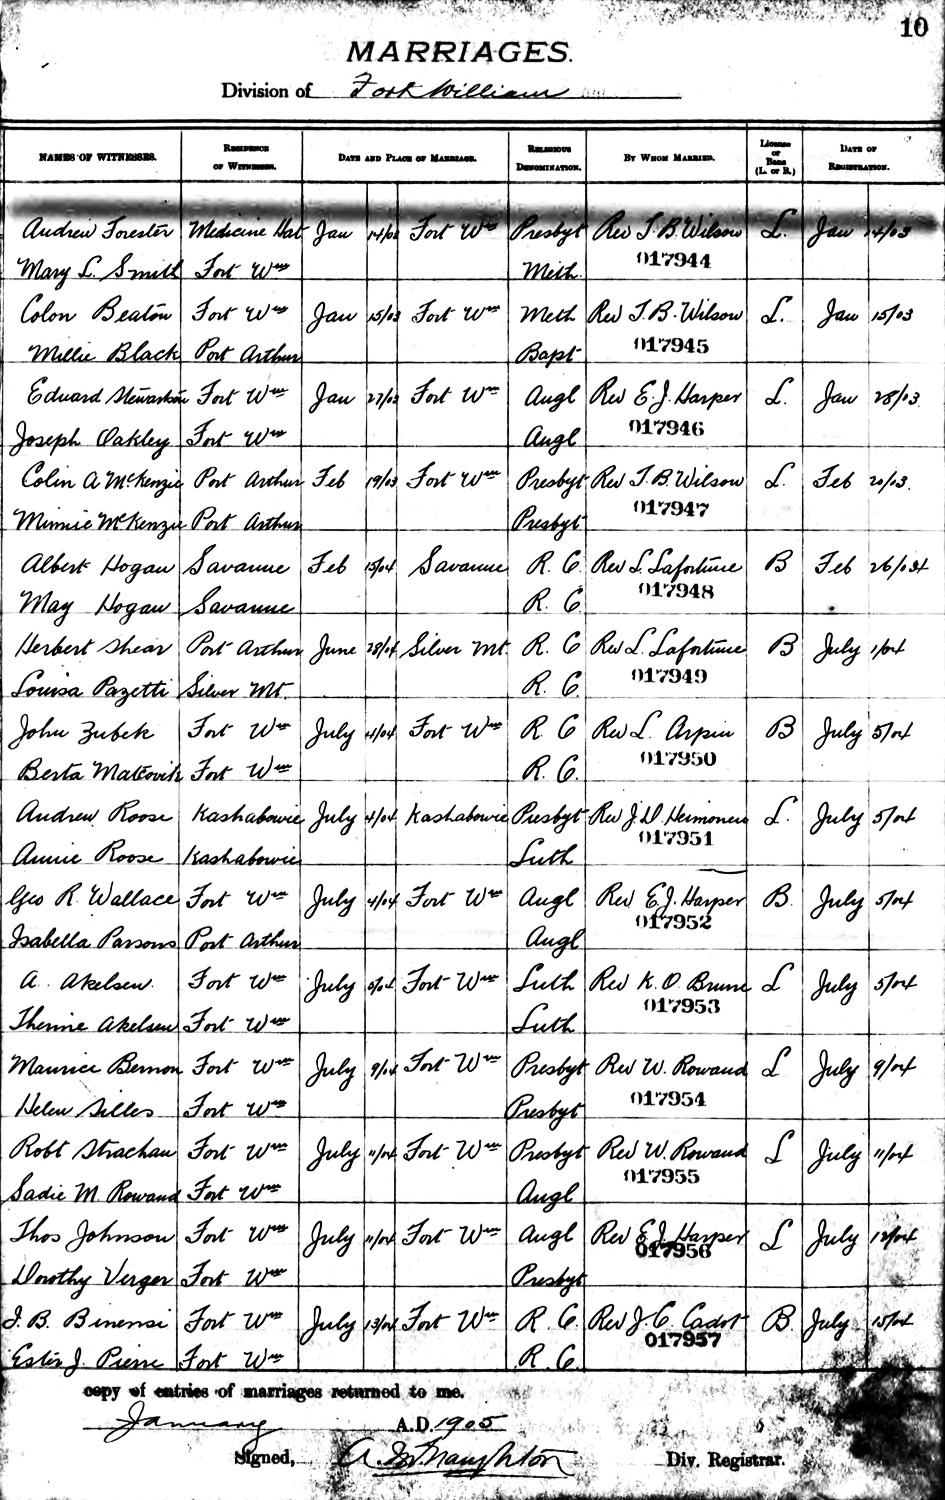 10
MARRIAGES.
Division of Fort William
NAMES OF WITNESSES. RESIDENCE OF WITNESSES. DATE AND PLACE OF MARRIAGE. RELIGIOUS DENOMINATION. BY WHOM MARRIED. License or Bans (L. or B.) DATE OF REGISTRATION.
Andrew Forester Medicine Hat Jan 14/03 Fort Wm Presbyt Rev T. B. Wilson L. Jan 14/03
017944
Mary L. Smith Fort Wm Meth
Colon Beaton Fort Wm Jan 15/03 Fort Wm Meth Rev T. B. Wilson L. Jan 15/03
017945
Millie Black Port Arthur Bapt
Edward Stewartson Fort Wm Jan 27/03 Fort Wm Angl Rev E. J. Harper L. Jan 28/03
017946
Joseph Oakley Fort Wm Angl
Colin A McKenzie Port Arthur Feb 19/03 Fort Wm Presbyt Rev T. B. Wilson L. Feb 20/03.
017947
Minnie McKenzie Port Arthur Presbyt
Albert Hogan Savanne Feb 15/04 Savanne R. C. Rev L. Lafortune B Feb 26/04
017948
May Hogan Savanne R. C.
Herbert Shear Port Arthur June 28/04 Silver Mt. R. C Rev L. Lafortune B July 1/04
017949
Louisa Pazetti Silver Mt. R. C.
John Zubek Fort Wm July 4/04 Fort Wm R. C Rev L. Arpin B July 5/04
017950
Berta Matcovik Fort Wm R. C.
Andrew Roose Kashabowie July 4/04 Kashabowie Presbyt Rev J. D. L. July 5/04
017951
Annie Roose Kashabowie Luth
Geo R. Wallace Fort Wm July 4/04 Fort Wm Angl Rev E. J. Harper B. July 5/04
017952
Isabella Parsons Port Arthur Angl
A. Akelsen Fort Wm July 5/04 Fort Wm Luth Rev K. O. L July 5/04
017953
Akelsen Fort Wm Luth
Maurice Fort Wm July 9/04 Fort Wm Presbyt Rev W. Rowand L July 9/04
017954
Helen Silles Fort Wm Presbyt
Robt Strachan Fort Wm July 11/04 Fort Wm Presbyt Rev W. Rowand L July 11/04
017955
Sadie M. Rowand Fort Wm Angl
Thos Johnson Fort Wm July 11/04 Fort Wm Angl Rev E J Harper L July 12/04
017956
Dorothy Verger Fort Wm Presbyt
J. B. Binensi Fort Wm July 13/04 Fort Wm R. C. Rev J. C. Cadot B. July 15/04
017957
Ester J. Pierre Fort Wm R. C.
copy of entries of marriages returned to me.
January A.D. 1905
Signed, A. McNaughton Div. Registrar.